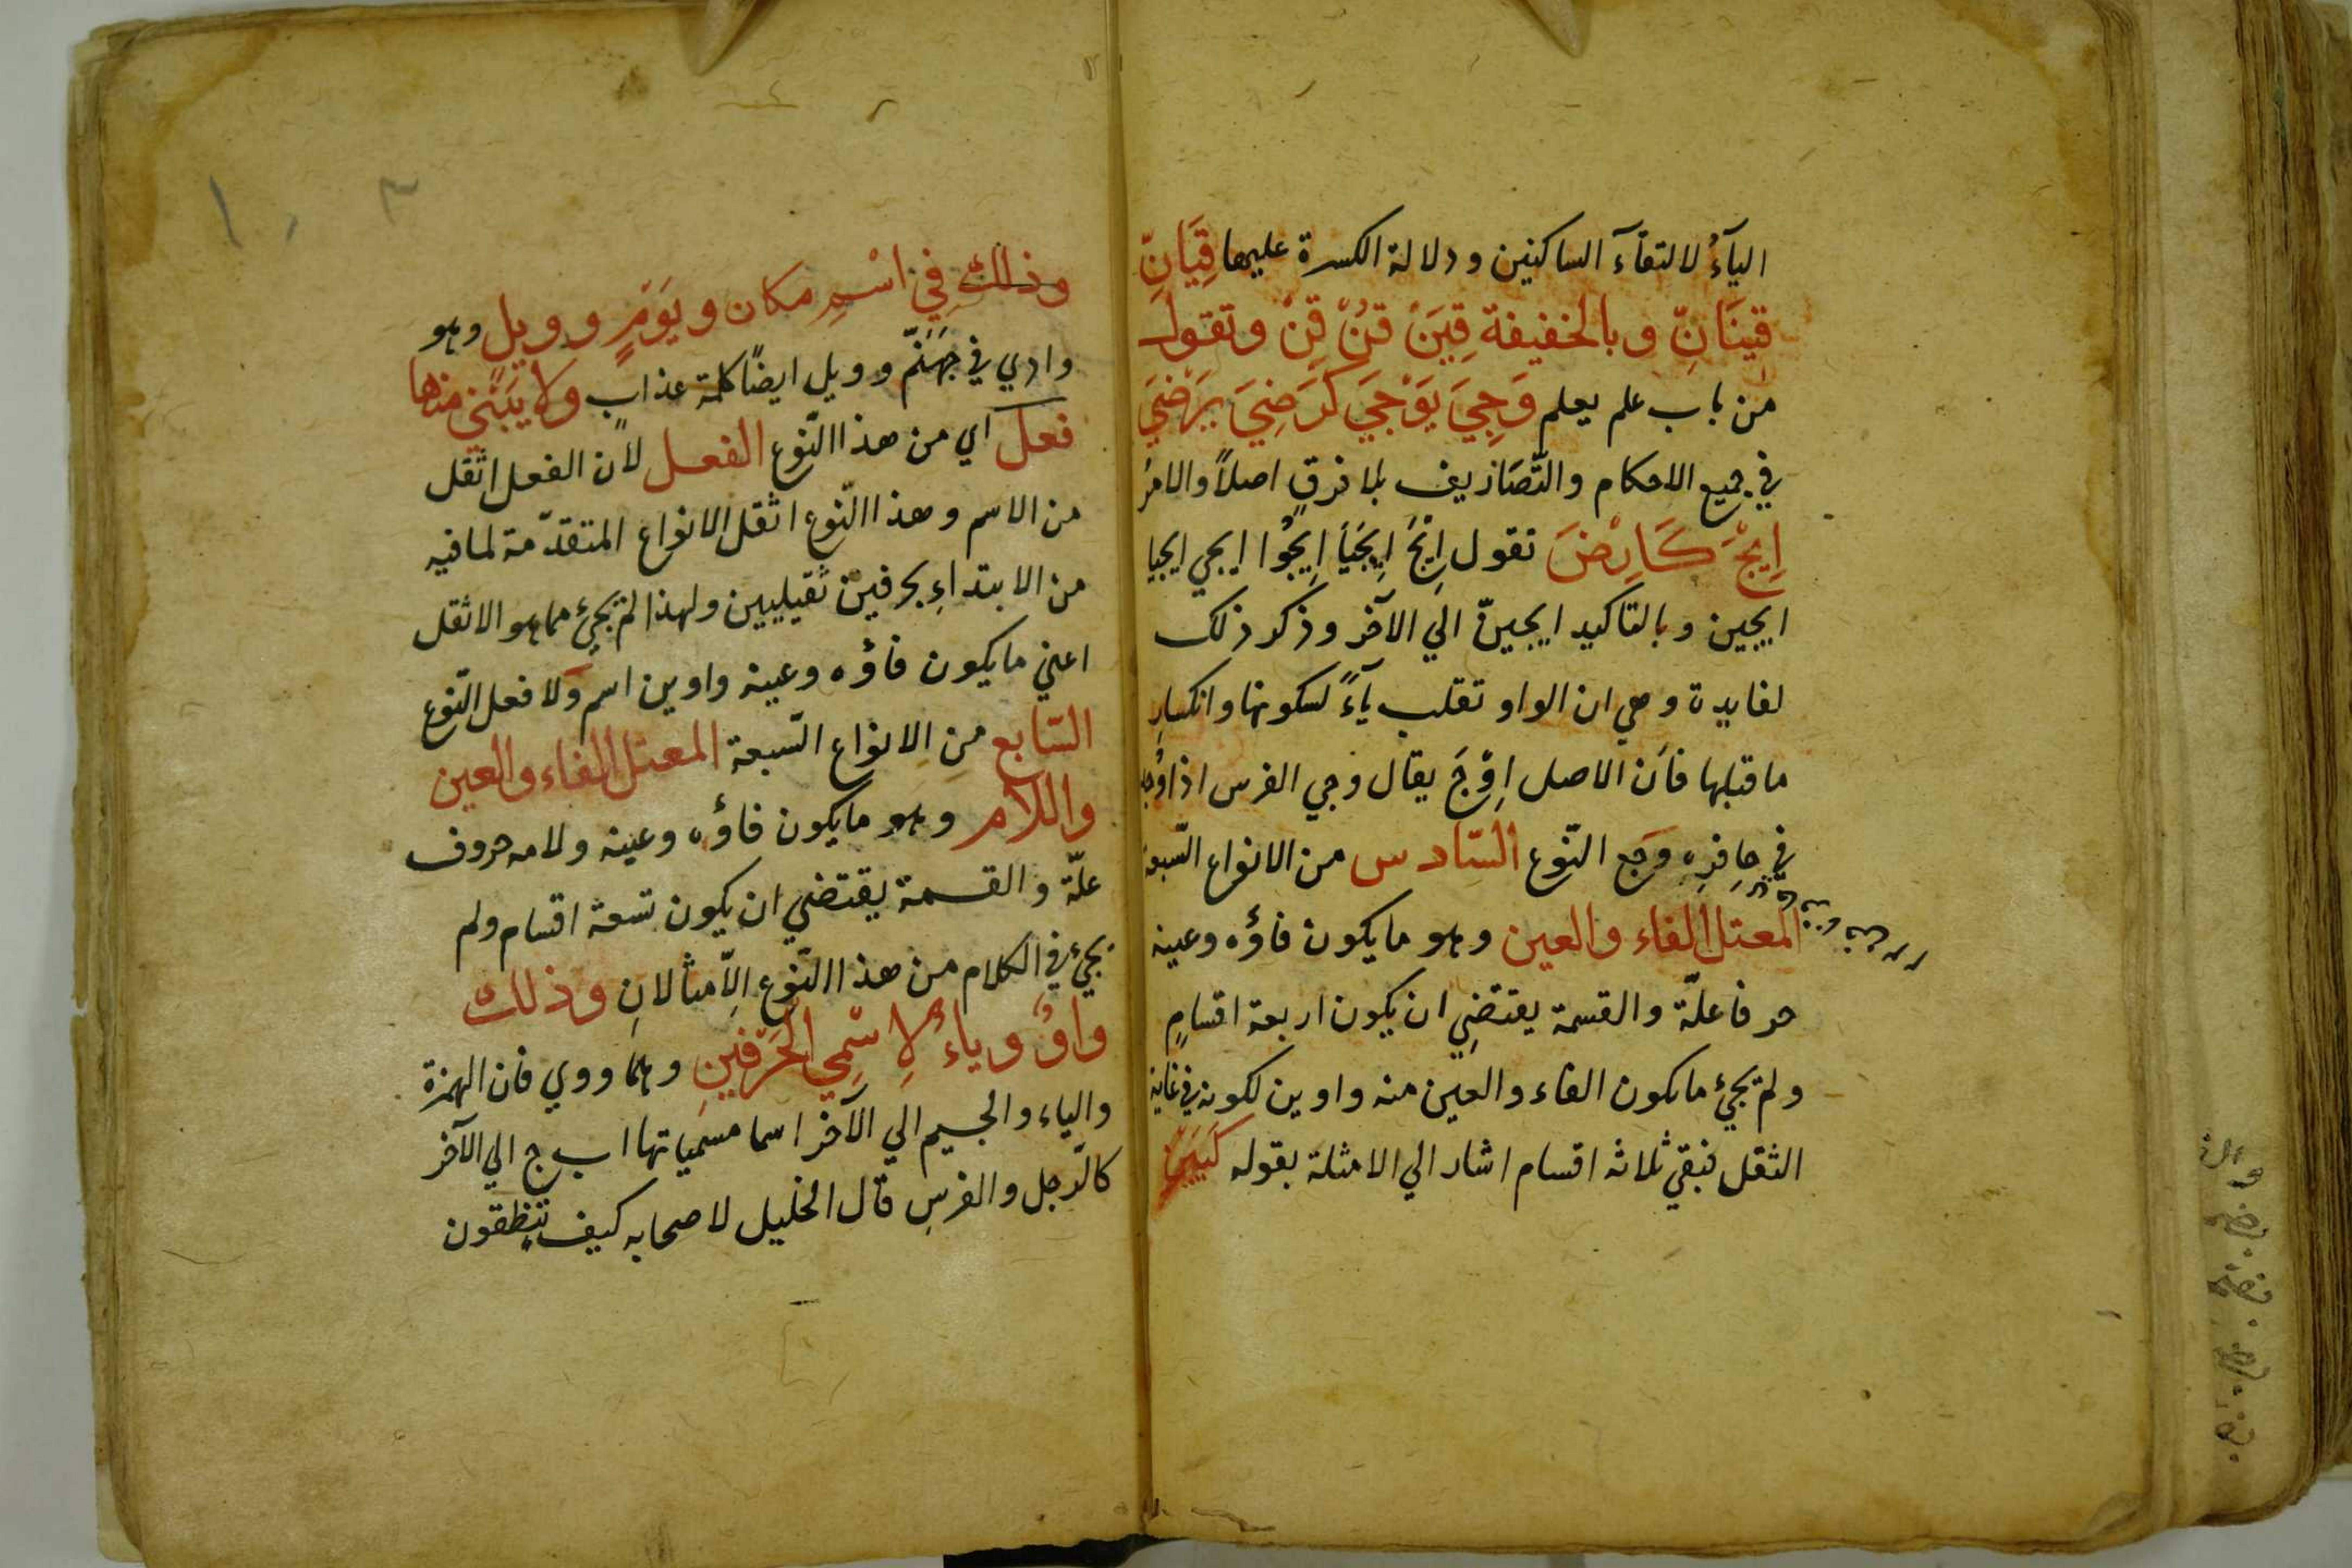 اليآءُ لالتقآء الساكنين ودلالة الكسرة عليها قِيَانِّ
قِينَانِّ وبالخفيفة قِيَنْ قُنْ قِنْ وتقول
من باب علم يعلم وَجِيَ يَوْجَي كَرَضِيَ يَرْضَيَ
في جميع الاحكام والتّصَاريف بلا فرقٍ اصلاً والامرُ
اِيْجَ كَارِضَ تقول اِيْجَ اِيجَيَا اِيجَوُا ايجي ايجيا
ايجين وبالتاكيد ايجينّ الي الآخر وذكر ذلك
لفايدة وهي ان الواو تقلب يآءً لسكونها وانكسارِ
ما قبلها فاَن الاصل اِوْجَ يقال وجي الفرس اذا وُجد
في حافِرِهِ وَجَع النّوع السّادس من الانواع السّبعة
المعتل الفاء والعين وهو ما يكون فاؤه وعينه
حرفا علّة والقسمة يقتضِي ان يكون اربعة اقسامٍ
ولم يجئ ما يكون الفاء والعين منه واوين لكونه في غاية
الثقل فبقي ثلاثه اقسام اشار الي الامثلة بقوله كَيَيَنٍ
وذلك فِي اسْمِ مكان ويَوْمٍ وويلٍ وهو
وادي في جَهَنّم وويل ايضًا كلمة عذابٍ وَلا يُبْنَي منها
فعل اي من هذا النّوع الفعل لان الفعل اثقل
من الاسم وهذا النّوع اثقل الانواع المتقدّمة لما فيه
من الابتداءِ بحرفين ثقيليين ولهذا لم يجئ مما هو الاثقل
اعني ما يكون فاؤه وعينه واوين اسم ولا فعل النّوع
السّابع مِنِ الانواع السّبعة المعتل الفاء والعين
واللام وهو ما يكون فاؤه وعينه ولامه حروف
علّة والقسمة يقتضي ان يكون تسعة اقسام ولم
يجئ في الكلام من هذا النّوع اِلّا مثالانِ وذلك
واوٌ وياءٌ لِاسْمِي الحَرْفَينِ وهما ووي فان الهمزة
والياء والجيم الي الآخر اسما مسمياتها ا ب ج الي الآخر
كالرّجل والفرسِ قال الخليل لاصحابه كيف تنطقون